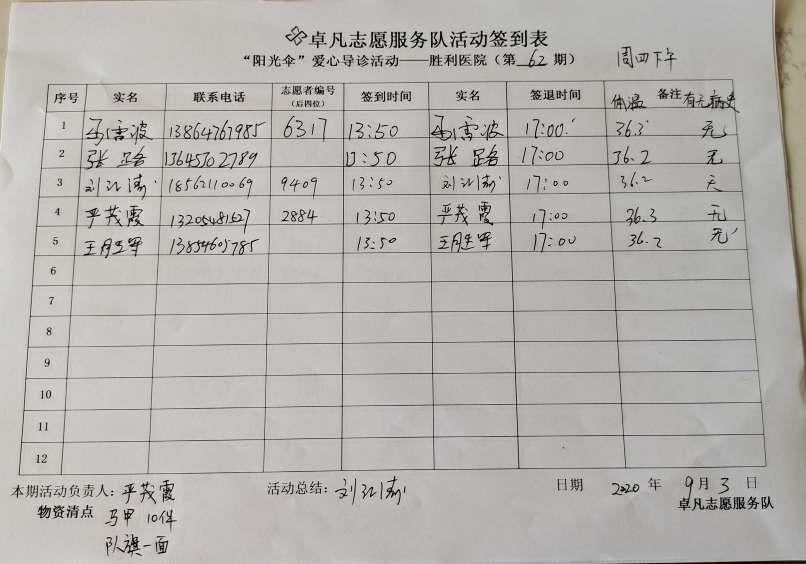 卓凡志愿服务队活动签到表
“阳光伞”爱心导诊活动——胜利医院（第 62 期） 周四下午
序号 实名 联系电话 志愿者编号（后四位） 签到时间 实名 签退时间 体温 备注 有无病史
1 波 13864767985 6317 13:50 波 17:00 36.3 无
2 张 13645702789 13:50 张 17:00 36.2 无
3 刘江涛 18562110069 9409 13:50 刘江涛 17:00 36.2 无
4 严茂霞 13205481527 2884 13:50 严茂霞 17:00 36.3 无
5 王 军 13854605785 13:50 王 军 17:00 36.2 无
6
7
8
9
10
11
12
本期活动负责人：严茂霞 活动总结：刘江涛 日期 2020 年 9 月 3 日
物资清点 马甲 10件 卓凡志愿服务队
队旗一面